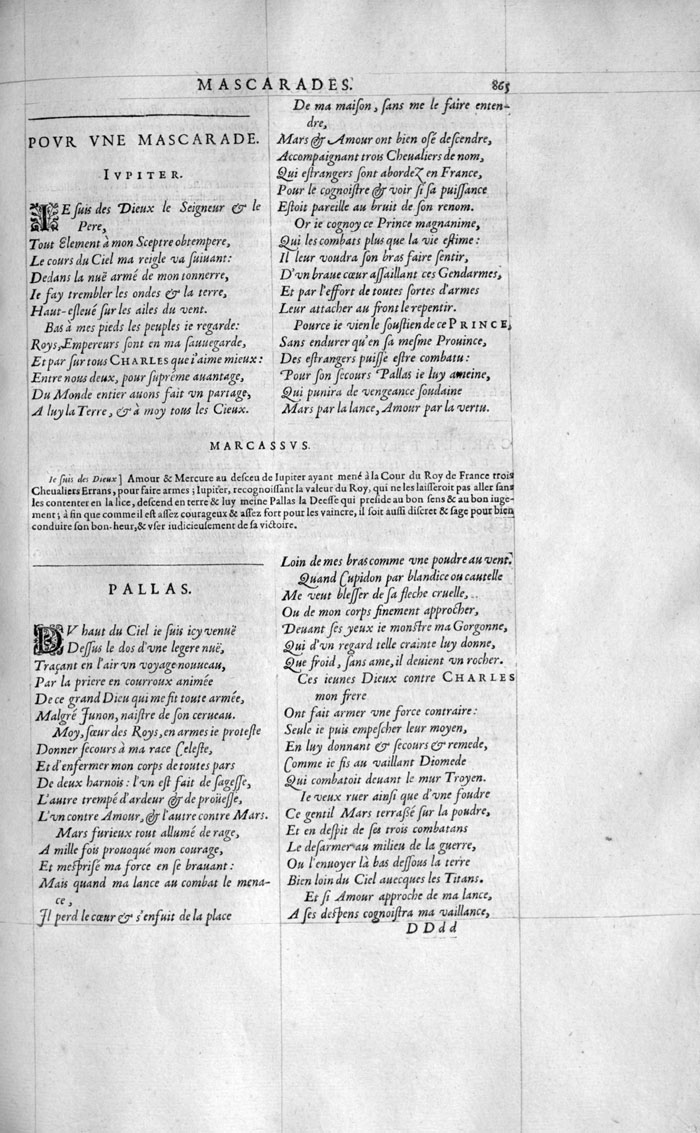 MASCARADES. 865
POVR VNE MASCARADE.
IVPITER.
IE suis des Dieux le Seigneur & le
Pere,
Tout Element à mon Sceptre obtempere,
Le cours du Ciel ma reigle va suiuant:
Dedans la nuë armé de mon tonnerre,
Ie fay trembler les ondes & la terre,
Haut-esleué sur les ailes du vent.
Bas à mes pieds les peuples ie regarde:
Roys, Empereurs sont en ma sauuegarde,
Et par sur tous CHARLES que i'aime mieux:
Entre nous deux, pour suprême auantage,
Du Monde entier auons fait vn partage,
A luy la Terre, & à moy tous les Cieux.
De ma maison, sans me le faire enten-
dre,
Mars & Amour ont bien osé descendre,
Accompaignant trois Cheualiers de nom,
Qui estrangers sont abordez en France,
Pour le cognoistre & voir si sa puissance
Estoit pareille au bruit de son renom.
Or ie cognoy ce Prince magnanime,
Qui les combats plus que la vie estime:
Il leur voudra son bras faire sentir,
D'vn braue cœur assaillant ces Gendarmes,
Et par l'effort de toutes sortes d'armes
Leur attacher au front le repentir.
Pource ie vien le soustien de ce PRINCE,
Sans endurer qu'en sa mesme Prouince,
Des estrangers puisse estre combatu:
Pour son secours Pallas ie luy ameine,
Qui punira de vengeance soudaine
Mars par la lance, Amour par la vertu.
MARCASSVS.
Ie suis des Dieux] Amour & Mercure au desceu de Iupiter ayant mené à la Cour du Roy de France trois
Cheualiers Errans, pour faire armes; Iupiter, recognoissant la valeur du Roy, qui ne les laisseroit pas aller sans
les contenter en la lice, descend en terre & luy meine Pallas la Deesse qui preside au bon sens & au bon iuge-
ment; à fin que comme il est assez courageux & assez fort pour les vaincre, il soit aussi discret & sage pour bien
conduire son bon-heur, & vser iudicieusement de sa victoire.
PALLAS.
DV haut du Ciel ie suis icy venuë
Dessus le dos d'vne legere nuë,
Traçant en l'air vn voyage nouueau,
Par la priere en courroux animée
De ce grand Dieu qui me fit toute armée,
Malgré Junon, naistre de son cerueau.
Moy, sœur des Roys, en armes ie proteste
Donner secours à ma race Celeste,
Et d'enfermer mon corps de toutes pars
De deux harnois: l'vn est fait de sagesse,
L'autre trempé d'ardeur & de proüesse,
L'vn contre Amour, & l'autre contre Mars.
Mars furieux tout allumé de rage,
A mille fois prouoqué mon courage,
Et mesprisé ma force en se brauant:
Mais quand ma lance au combat le mena-
ce,
Jl perd le cœur & s'enfuit de la place
Loin de mes bras comme vne poudre au vent.
Quand Cupidon par blandice ou cautelle
Me veut blesser de sa fleche cruelle,
Ou de mon corps finement approcher,
Deuant ses yeux ie monstre ma Gorgonne,
Qui d'vn regard telle crainte luy donne,
Que froid, sans ame, il deuient vn rocher.
Ces ieunes Dieux contre CHARLES
mon frere
Ont fait armer vne force contraire:
Seule ie puis empescher leur moyen,
En luy donnant & secours & remede,
Comme ie fis au vaillant Diomede
Qui combatoit deuant le mur Troyen.
Ie veux ruer ainsi que d'vne foudre
Ce gentil Mars terrassé sur la poudre,
Et en despit de ses trois combatans
Le desarmer au milieu de la guerre,
Ou l'enuoyer là bas dessous la terre
Bien loin du Ciel auecques les Titans.
Et si Amour approche de ma lance,
A ses despens cognoistra ma vaillance,
DDdd